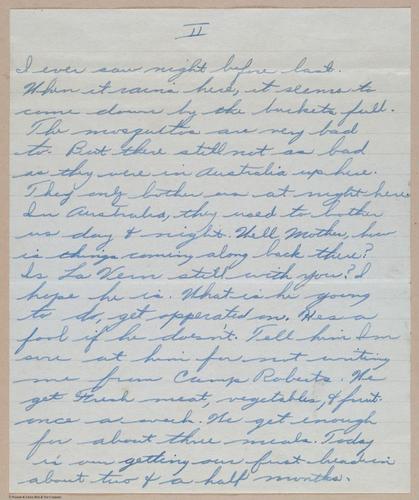 II
I ever saw night before last.
When it rains here, it seems to
come down by the buckets full.
The mosquitos are very bad
to. But there still not as bad
as they were in Australia up here.
They only bother us at night here.
In Australia, they used to bother
us day & night. Well Mother, how
is things coming along back there?
Is La Vern still with you? I
hope he is. What is he going
to do, get opperated on. He's a
fool if he doesn't. Tell him I'm
sore at him for not writing
me from Camp Roberts. We
get Fresh meat, vegetables, & fruit
once a week. We get enough
for about three meals. Today
is our getting our first bread in
about two & a half months.